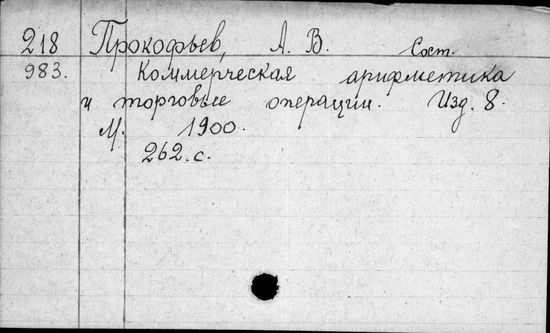 218 Прокофьев, А. В. Сост.
983. Коммерческая арифметика
и торговые операции. Изд. 8.
М. 1900.
262. с.